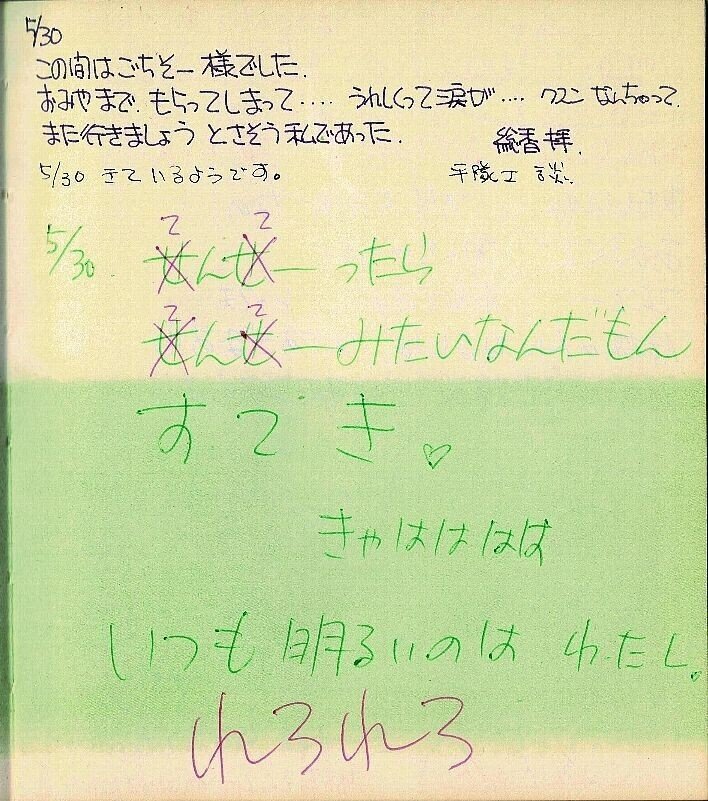 5/30
この間はごちそー様でした.
おみやまで.もらってしまって‥‥ うれしくって涙が… クスン なんちゃって.
また行きましょう とさそう私であった. 絵香拝.
5/30 きているようです。 談.
5/30 せんせーったら
て て
せんせーみたいなんだもん
て て
すてき♡
きゃはははは
いつも明るいのは わ・た・し。
れろれろ